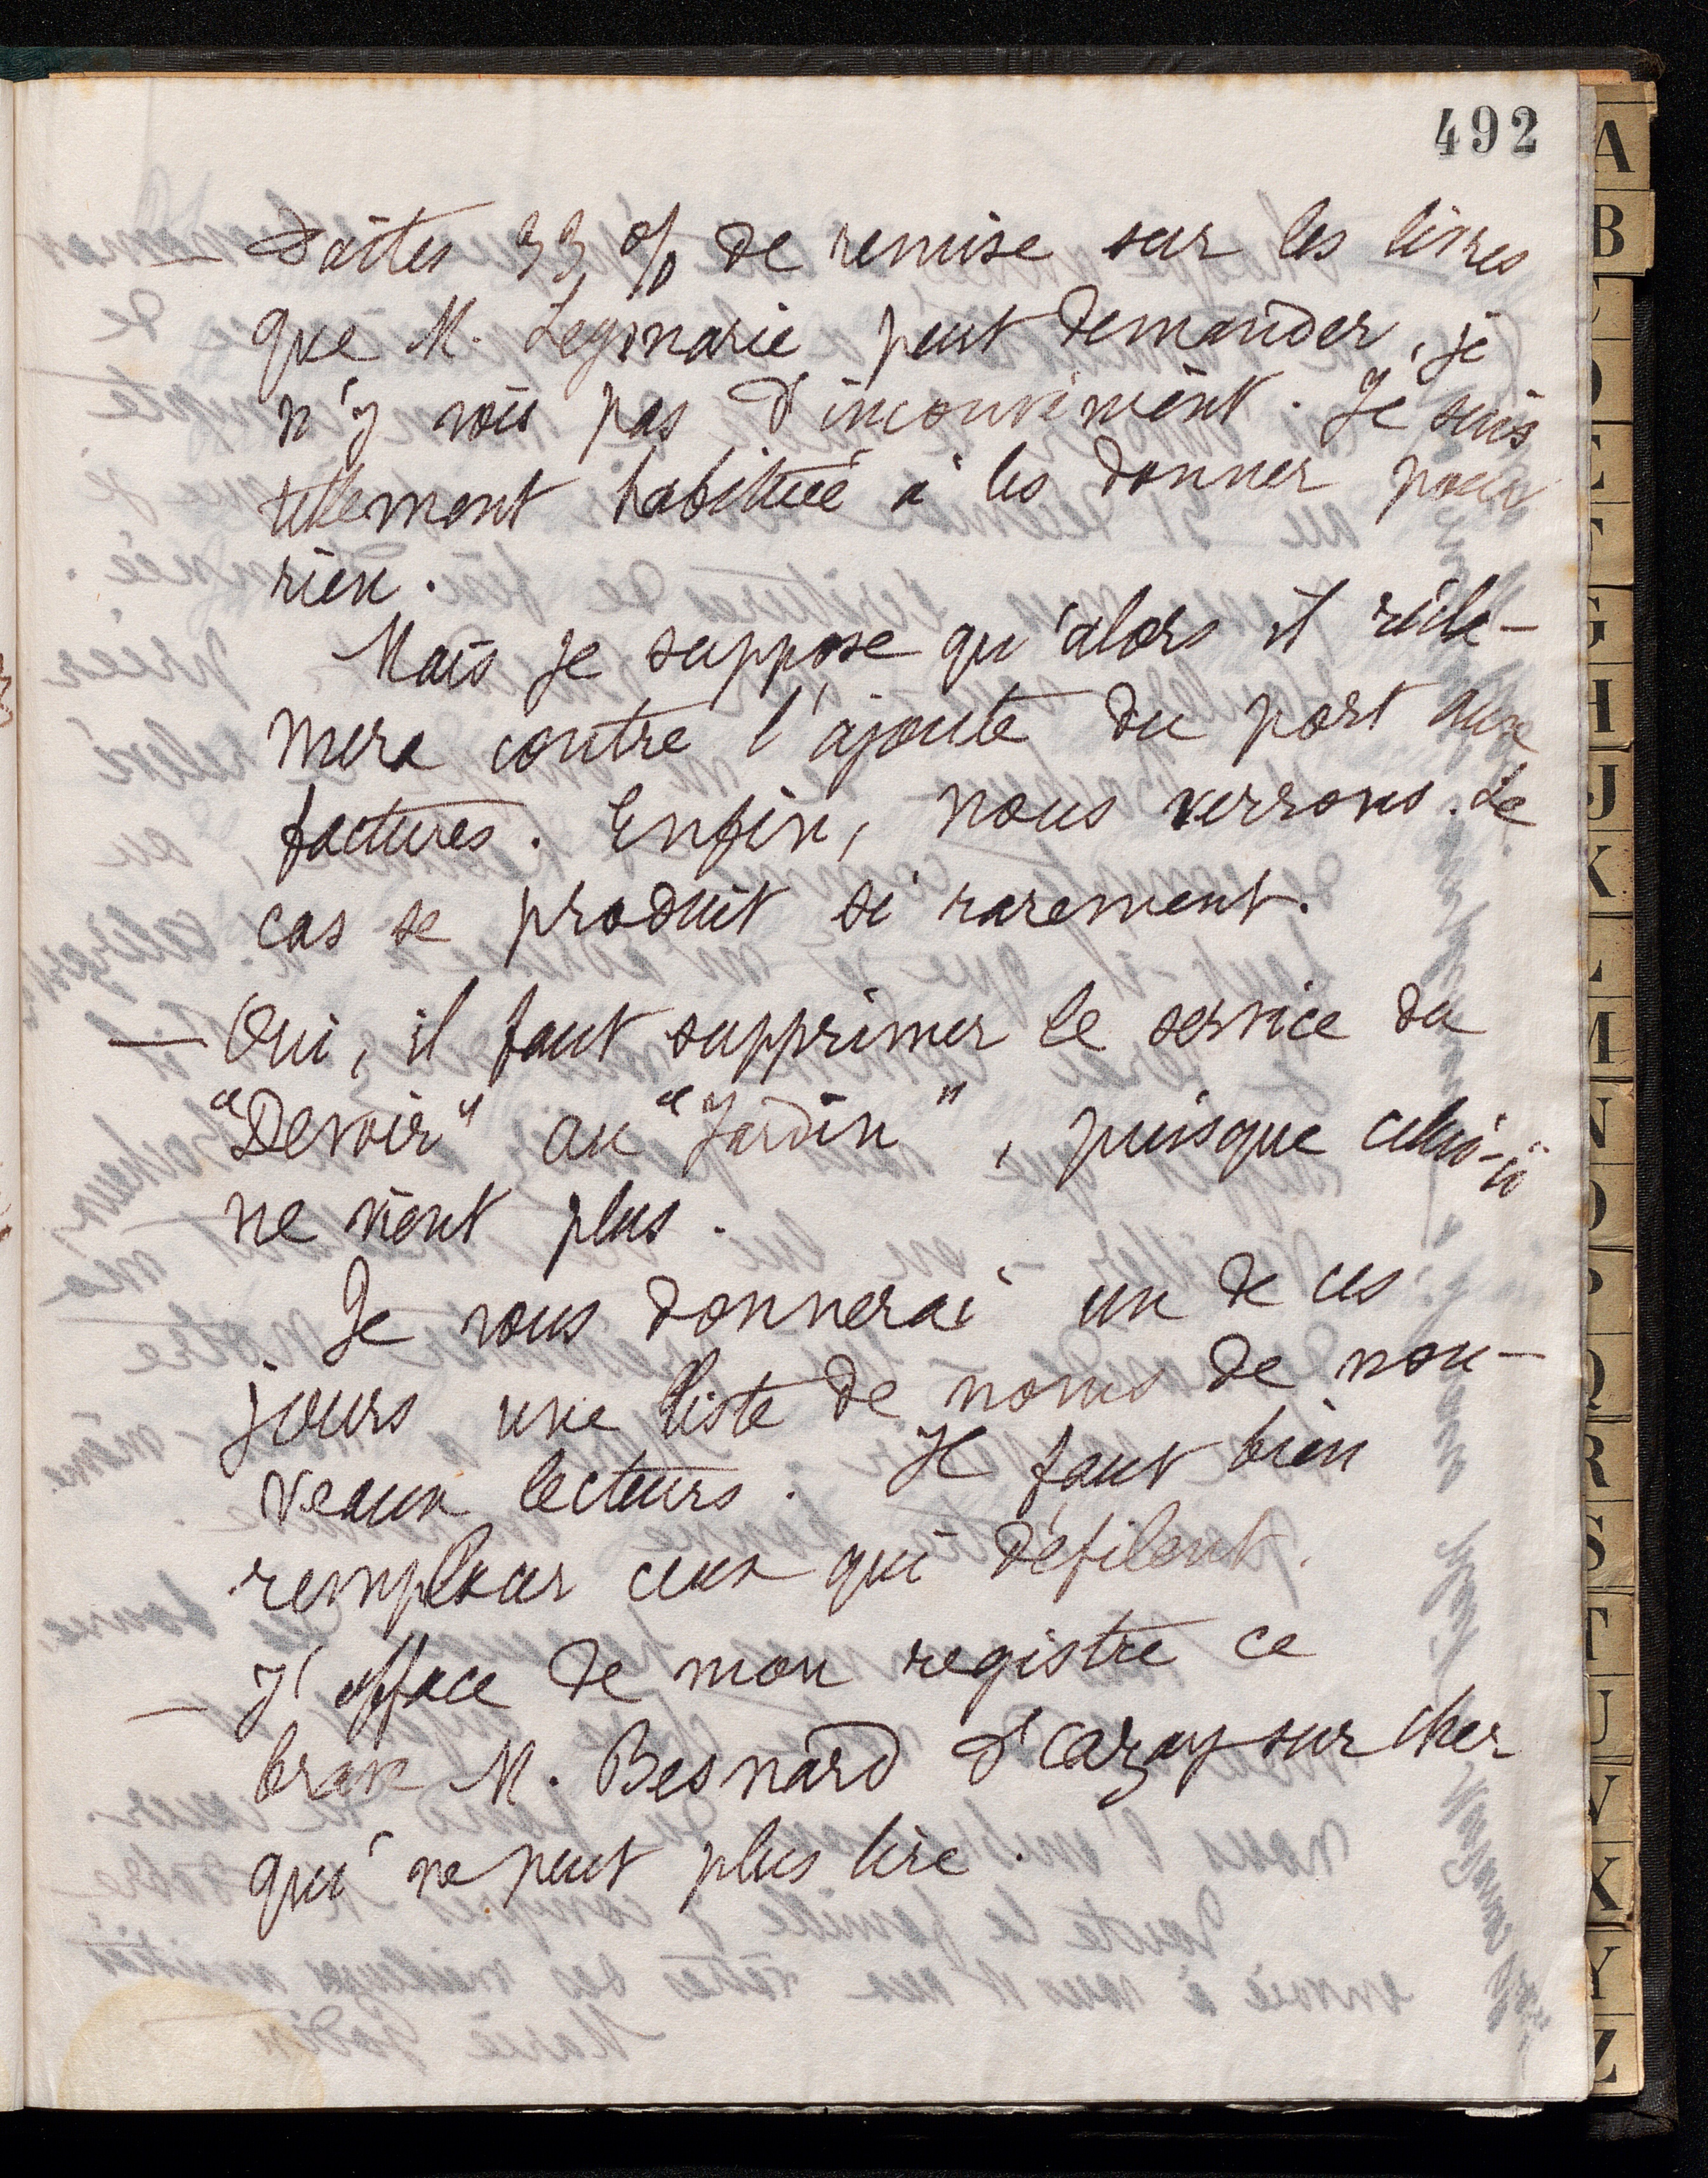 492
— Faites 33 % de remise sur les livres
que M. Leymarie peut demander, je
n'y vois pas d'inconvénient. Je suis
tellement habituée à les donner pour
rien.
Mais je suppose qu'alors il récla-
mera contre l'ajoute du port aux
factures. Enfin, nous verrons. Le
cas se produit si rarement.
— Oui, il faut supprimer le service du
"Devoir" au "Jardin", puisque celui-ci
ne vient plus.
Je vous donnerai un de ces
jours une liste de noms de nou-
veaux lecteurs. Il faut bien
remplacer ceux qui défilent.
— J'efface de mon registre ce
brave M. Besnard d'Azay-sur-Cher
qui ne peut plus lire.
A
B
D
E
F
G
H
J
K
L
M
N
O
P
Q
R
S
T
U
V
X
Y
Z